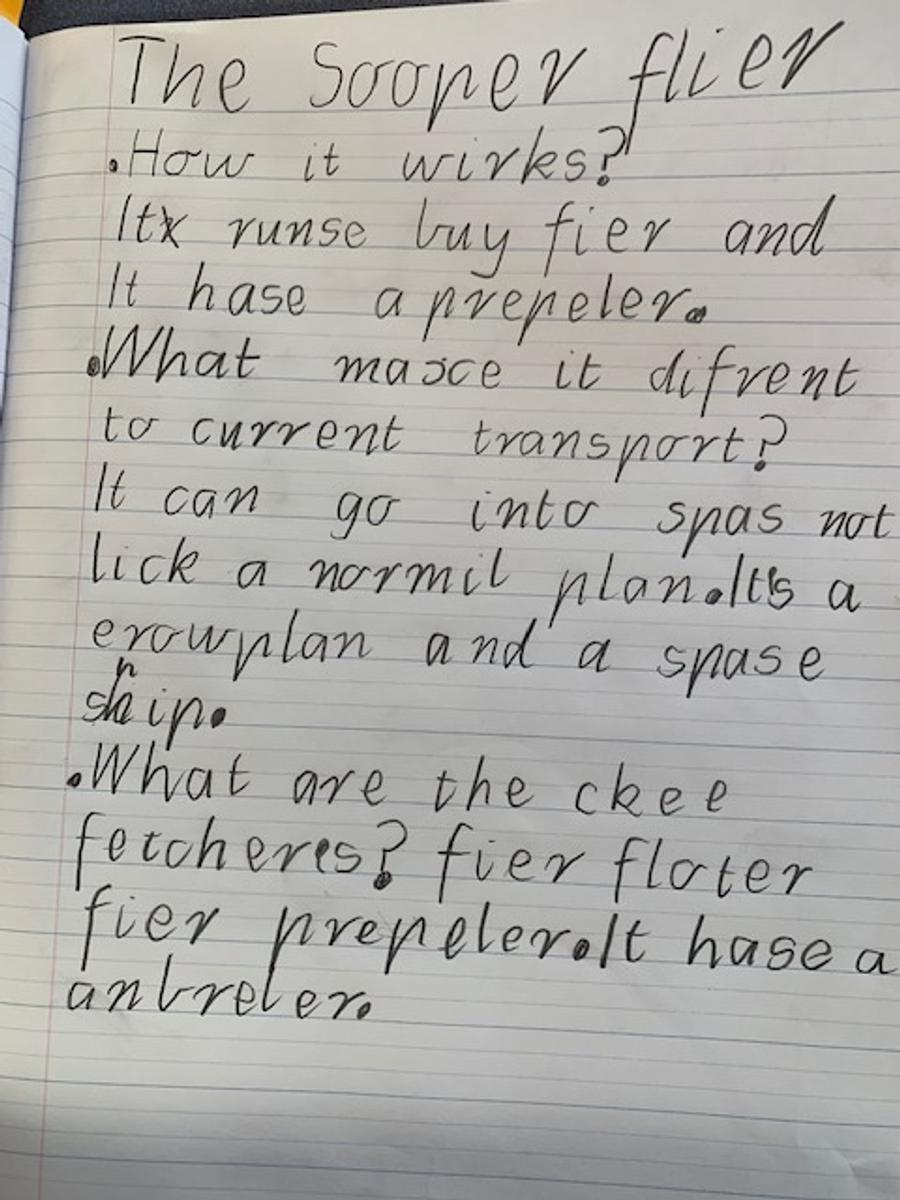 The Sooper flier
.How it wirks?
It runse buy fier and
It hase a prepeler.
.What masce it difrent
to current transport?
It can go into spas not
lick a normil plan.It's a
erowplan and a spase
ship.
.What are the ckee
fetcheres? fier floter
fier prepeler.It hase a
anbreler.